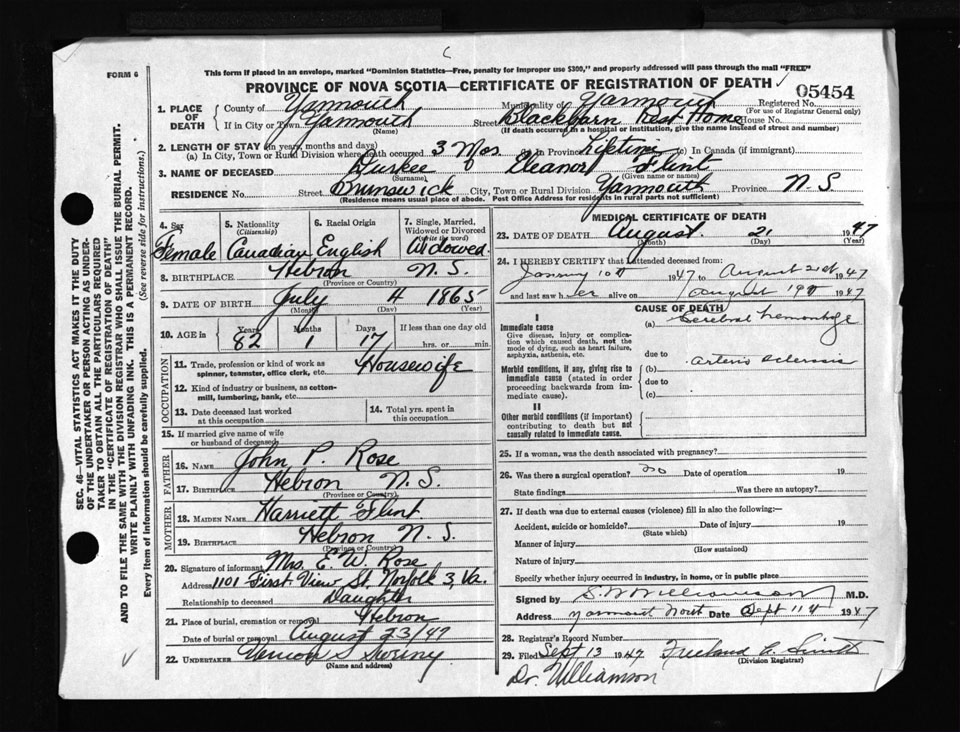 FORM 6
This form if placed in an envelope, marked "Dominion Statistics—Free, penalty for improper use $300," and properly addressed will pass through the mail "FREE"
PROVINCE OF NOVA SCOTIA—CERTIFICATE OF REGISTRATION OF DEATH
05454
1. PLACE OF DEATH
County of Yarmouth Municipality of Yarmouth Registered No.
(For use of Registrar General only)
If in City or Town Yarmouth Street Blackbarn Rest Home House No.
(Name) (If death occurred in a hospital or institution, give the name instead of street and number)
2. LENGTH OF STAY (in years, months and days)
(a) In City, Town or Rural Division where death occurred 3 Mos. In Province Lifetime (c) In Canada (if immigrant)
3. NAME OF DECEASED Durkee Eleanor Flint
(Surname) (Given name or names)
RESIDENCE No. Street Brunswick City, Town or Rural Division Yarmouth Province N.S
(Residence means usual place of abode. Post Office Address for residents in rural parts not sufficient)
4. Sex
Female
5. Nationality (Citizenship)
Canadian
6. Racial Origin
English
7. Single, Married, Widowed or Divorced (write the word)
Widowed
8. BIRTHPLACE Hebron N.S.
(Province or Country)
9. DATE OF BIRTH July 4 1865
(Month) (Day) (Year)
10. AGE in Years Months Days If less than one day old
82 1 17 hrs. or min.
OCCUPATION
11. Trade, profession or kind of work as spinner, teamster, office clerk, etc. Housewife
12. Kind of industry or business, as cotton-mill, lumbering, bank, etc.
13. Date deceased last worked at this occupation
14. Total yrs. spent in this occupation
15. If married give name of wife or husband of deceased
FATHER
16. NAME John P. Rose
17. BIRTHPLACE Hebron N.S.
(Province or Country)
MOTHER
18. MAIDEN NAME Harriett Flint
19. BIRTHPLACE Hebron N.S.
(Province or Country)
20. Signature of informant Mrs. E. W. Rose
Address 1101 First View St. Norfolk 3, Va.
Relationship to deceased Daughter
21. Place of burial, cremation or removal Hebron
Date of burial or removal August 23/47
22. UNDERTAKER Vernon S. Sweeny
(Name and address)
MEDICAL CERTIFICATE OF DEATH
23. DATE OF DEATH August 21 1947
(Month) (Day) (Year)
24. I HEREBY CERTIFY that I attended deceased from
January 10th 1947 to August 21st 1947
and last saw her alive on August 19th 1947
CAUSE OF DEATH
I
Immediate cause
Give disease, injury or complication which caused death, not the mode of dying, such as heart failure, asphyxia, asthenia, etc.
(a) Cerebral hemorrhage
due to
Morbid conditions, if any, giving rise to immediate cause (stated in order proceeding backwards from immediate cause).
(b) arterio sclerosis
due to
(c)
II
Other morbid conditions (if important) contributing to death but not causally related to immediate cause.
25. If a woman, was the death associated with pregnancy?
26. Was there a surgical operation? no Date of operation 19
State findings Was there an autopsy?
27. If death was due to external causes (violence) fill in also the following:—
Accident, suicide or homicide? Date of injury 19
(State which)
Manner of injury
(How sustained)
Nature of injury
Specify whether injury occurred in industry, in home, or in public place
Signed by S. W. Williamson M.D.
Address Yarmouth North Date Sept 11th 1947
28. Registrar's Record Number
29. Filed Sept 13 1947
(Division Registrar)
Dr. Williamson
SEC. 46—VITAL STATISTICS ACT MAKES IT THE DUTY
OF THE UNDERTAKER OR PERSON ACTING AS UNDER-
TAKER TO OBTAIN ALL THE PARTICULARS REQUIRED
IN THE "CERTIFICATE OF REGISTRATION OF DEATH"
AND TO FILE THE SAME WITH THE DIVISION REGISTRAR WHO SHALL ISSUE THE BURIAL PERMIT.
WRITE PLAINLY WITH UNFADING INK. THIS IS A PERMANENT RECORD.
Every item of Information should be carefully supplied. (See reverse side for instructions.)